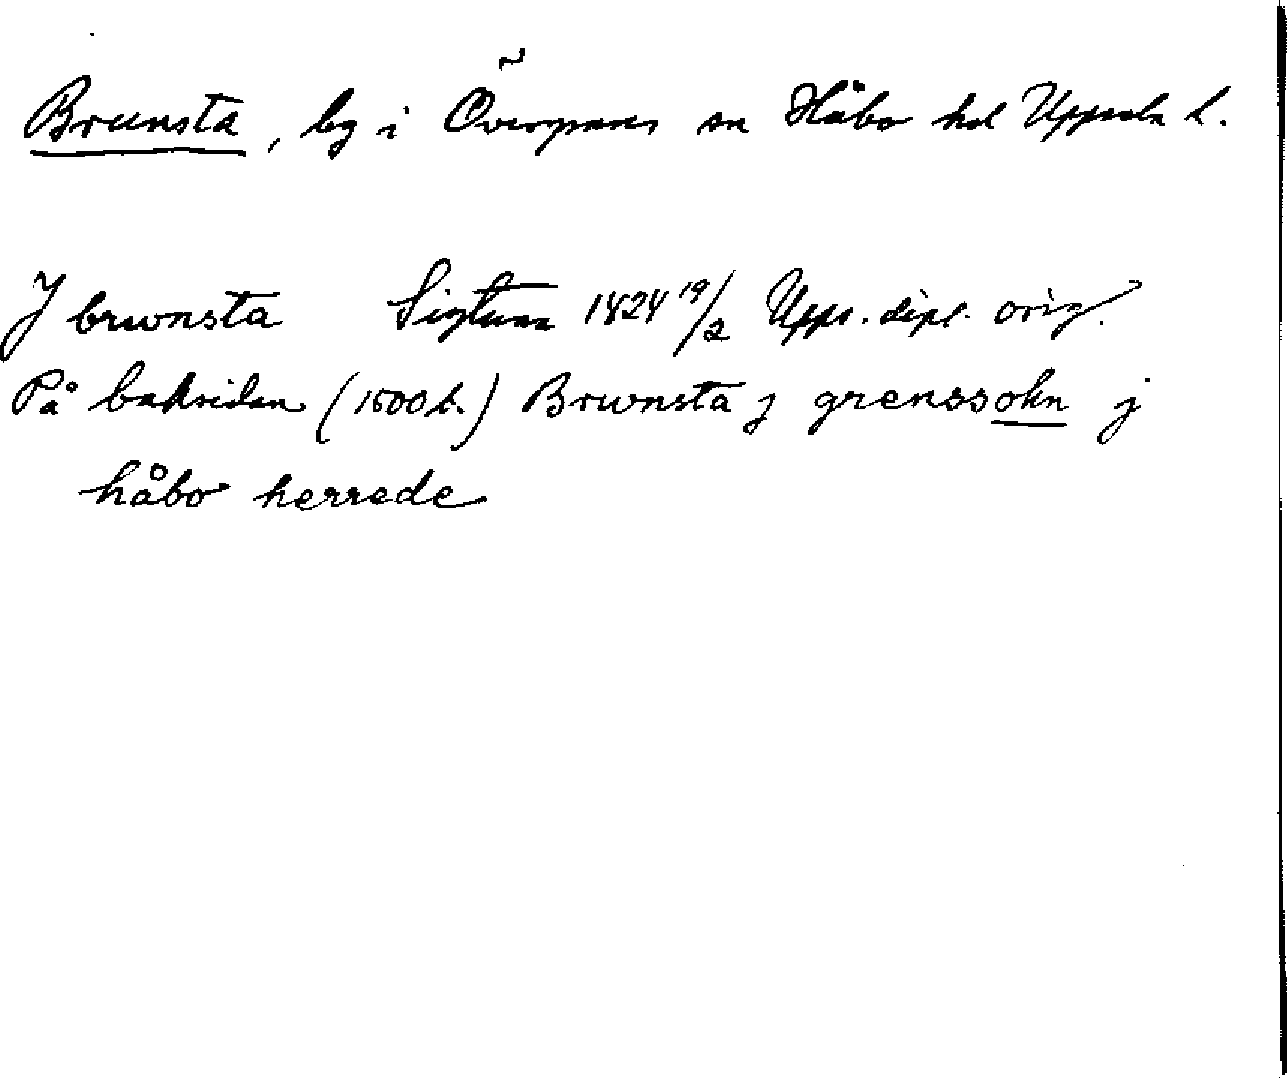 Brunsta, by i Övergrans sn Håbo hd Uppsala l.
J brwnsta Sigtuna 1424 19/2 Upps. dipl. orig.
På baksidan (1500 t.) Brwnsta j grenssokn j
håbo herrede